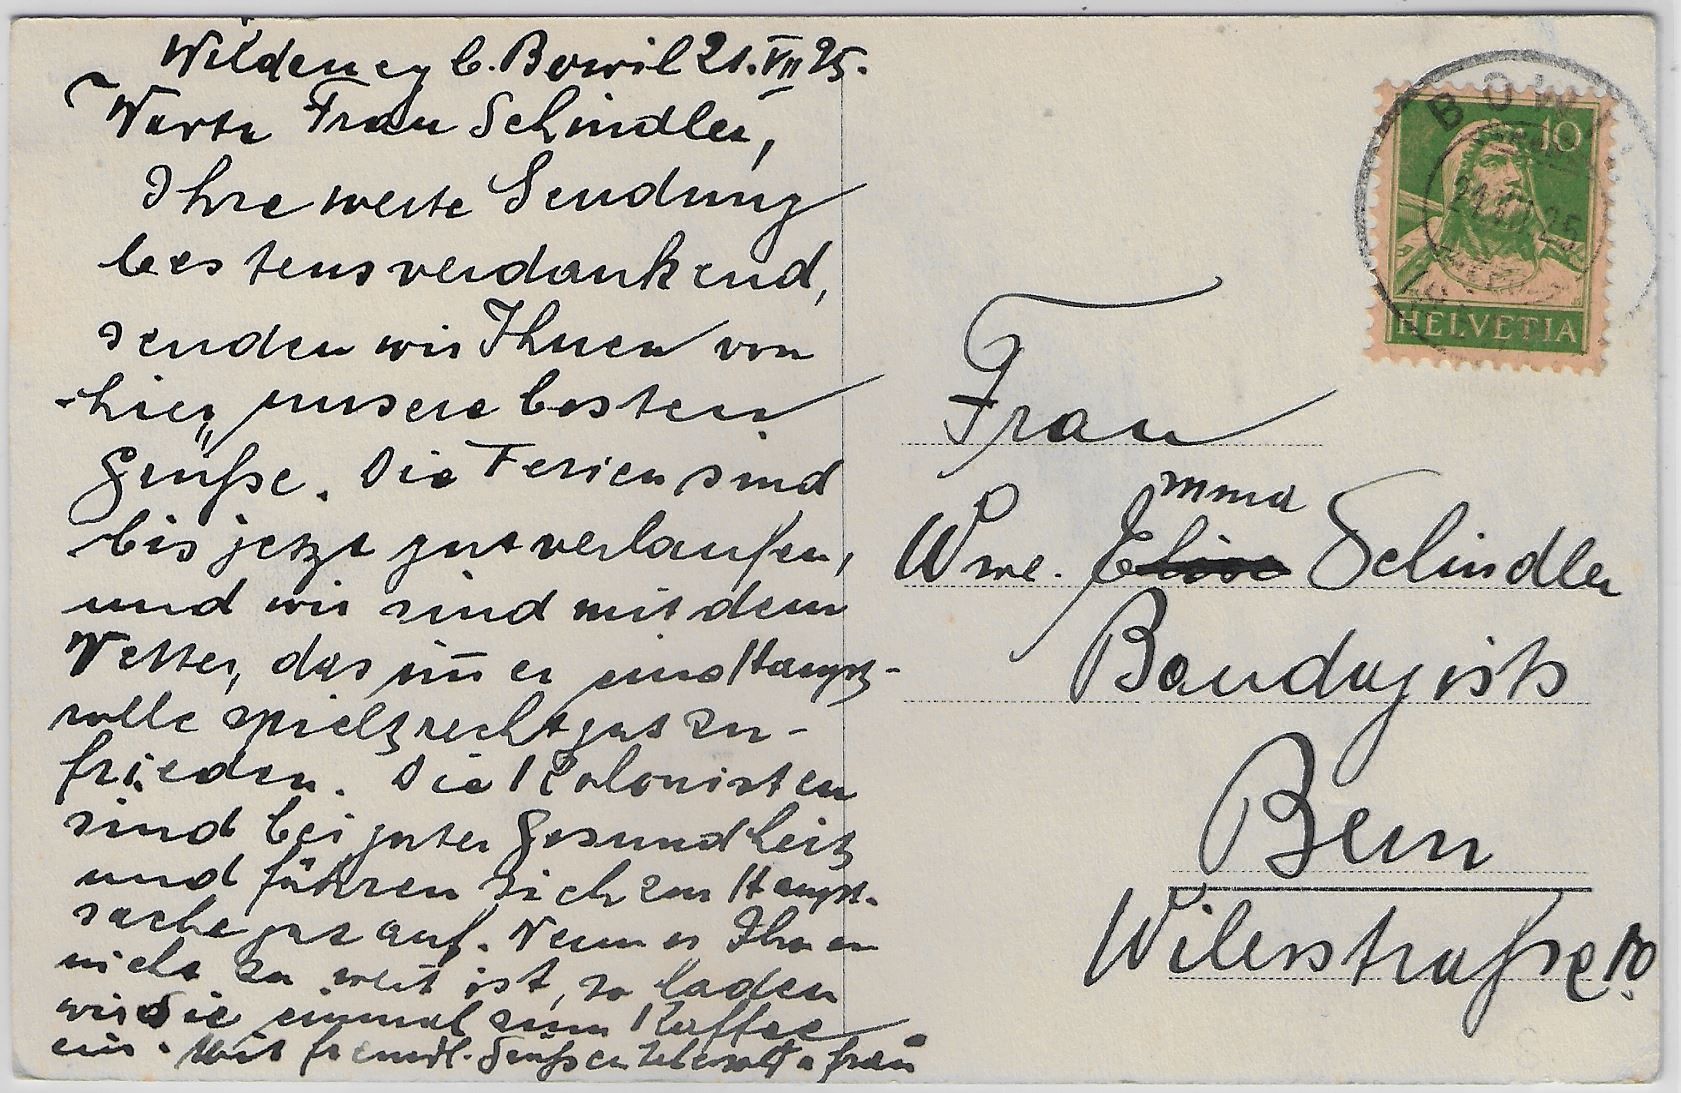 Wildeney b. Bowil 21. VII 25.
Werte Frau Schindler,
Ihre werte Sendung
bestens verdankend,
senden wir Ihnen von
hier unsere besten
Grüße. Die Ferien sind
bis jetzt gut verlaufen,
und wir sind mit dem
Wetter, das im̅er eine Haupt-
rolle spielt recht gut zu-
frieden. Die Kolonisten
sind bei guter Gesundheit
und führen sich zur Haupt-
sache gut auf. Wenn es Ihnen
nicht zu weit ist, so laden
wir Sie einmal zum Kaffee
ein. Mit freundl. Grüßen
BOWIL
21.VII.25
10
HELVETIA
Frau
mma
Wwe. Elise Schindler
Bandagists
Bern
Wilerstraße 10.